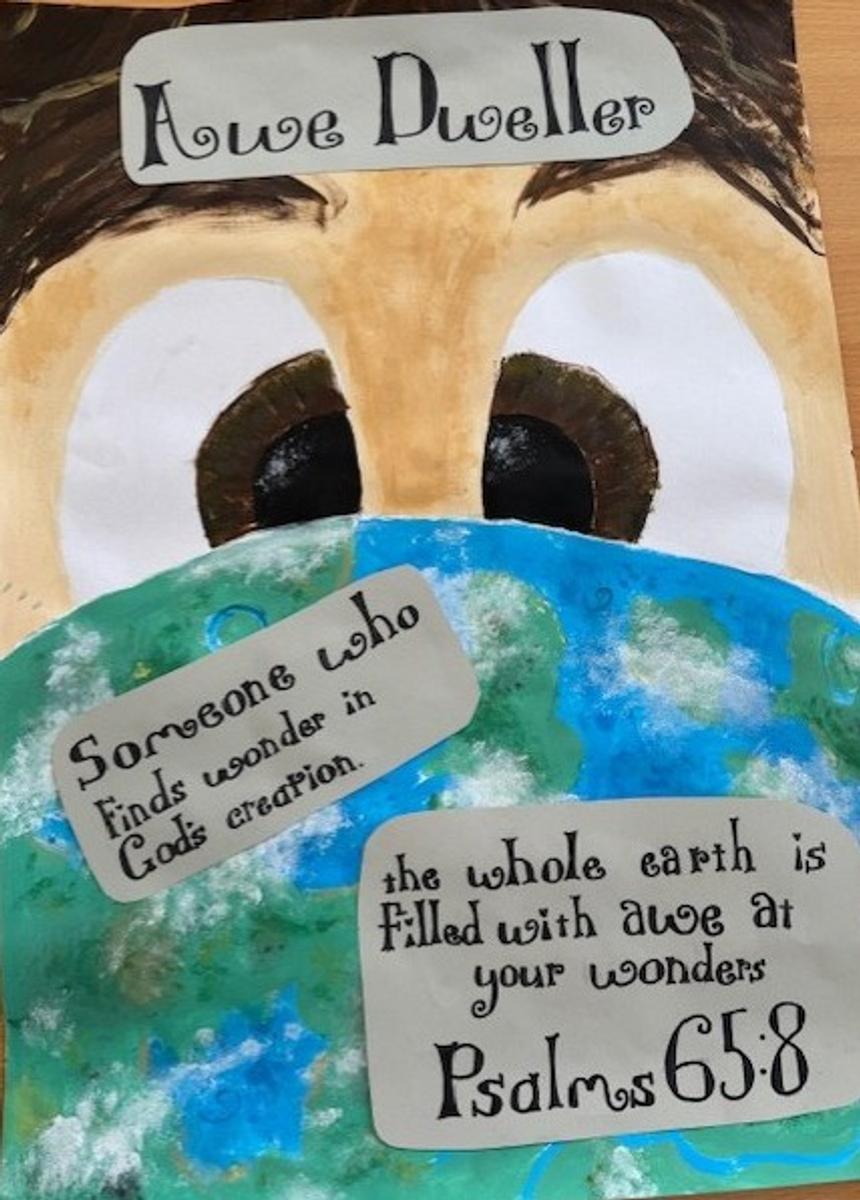 Awe Dweller
Someone who
Finds wonder in
God's creation.
the whole earth is
filled with awe at
your wonders
Psalms 65:8